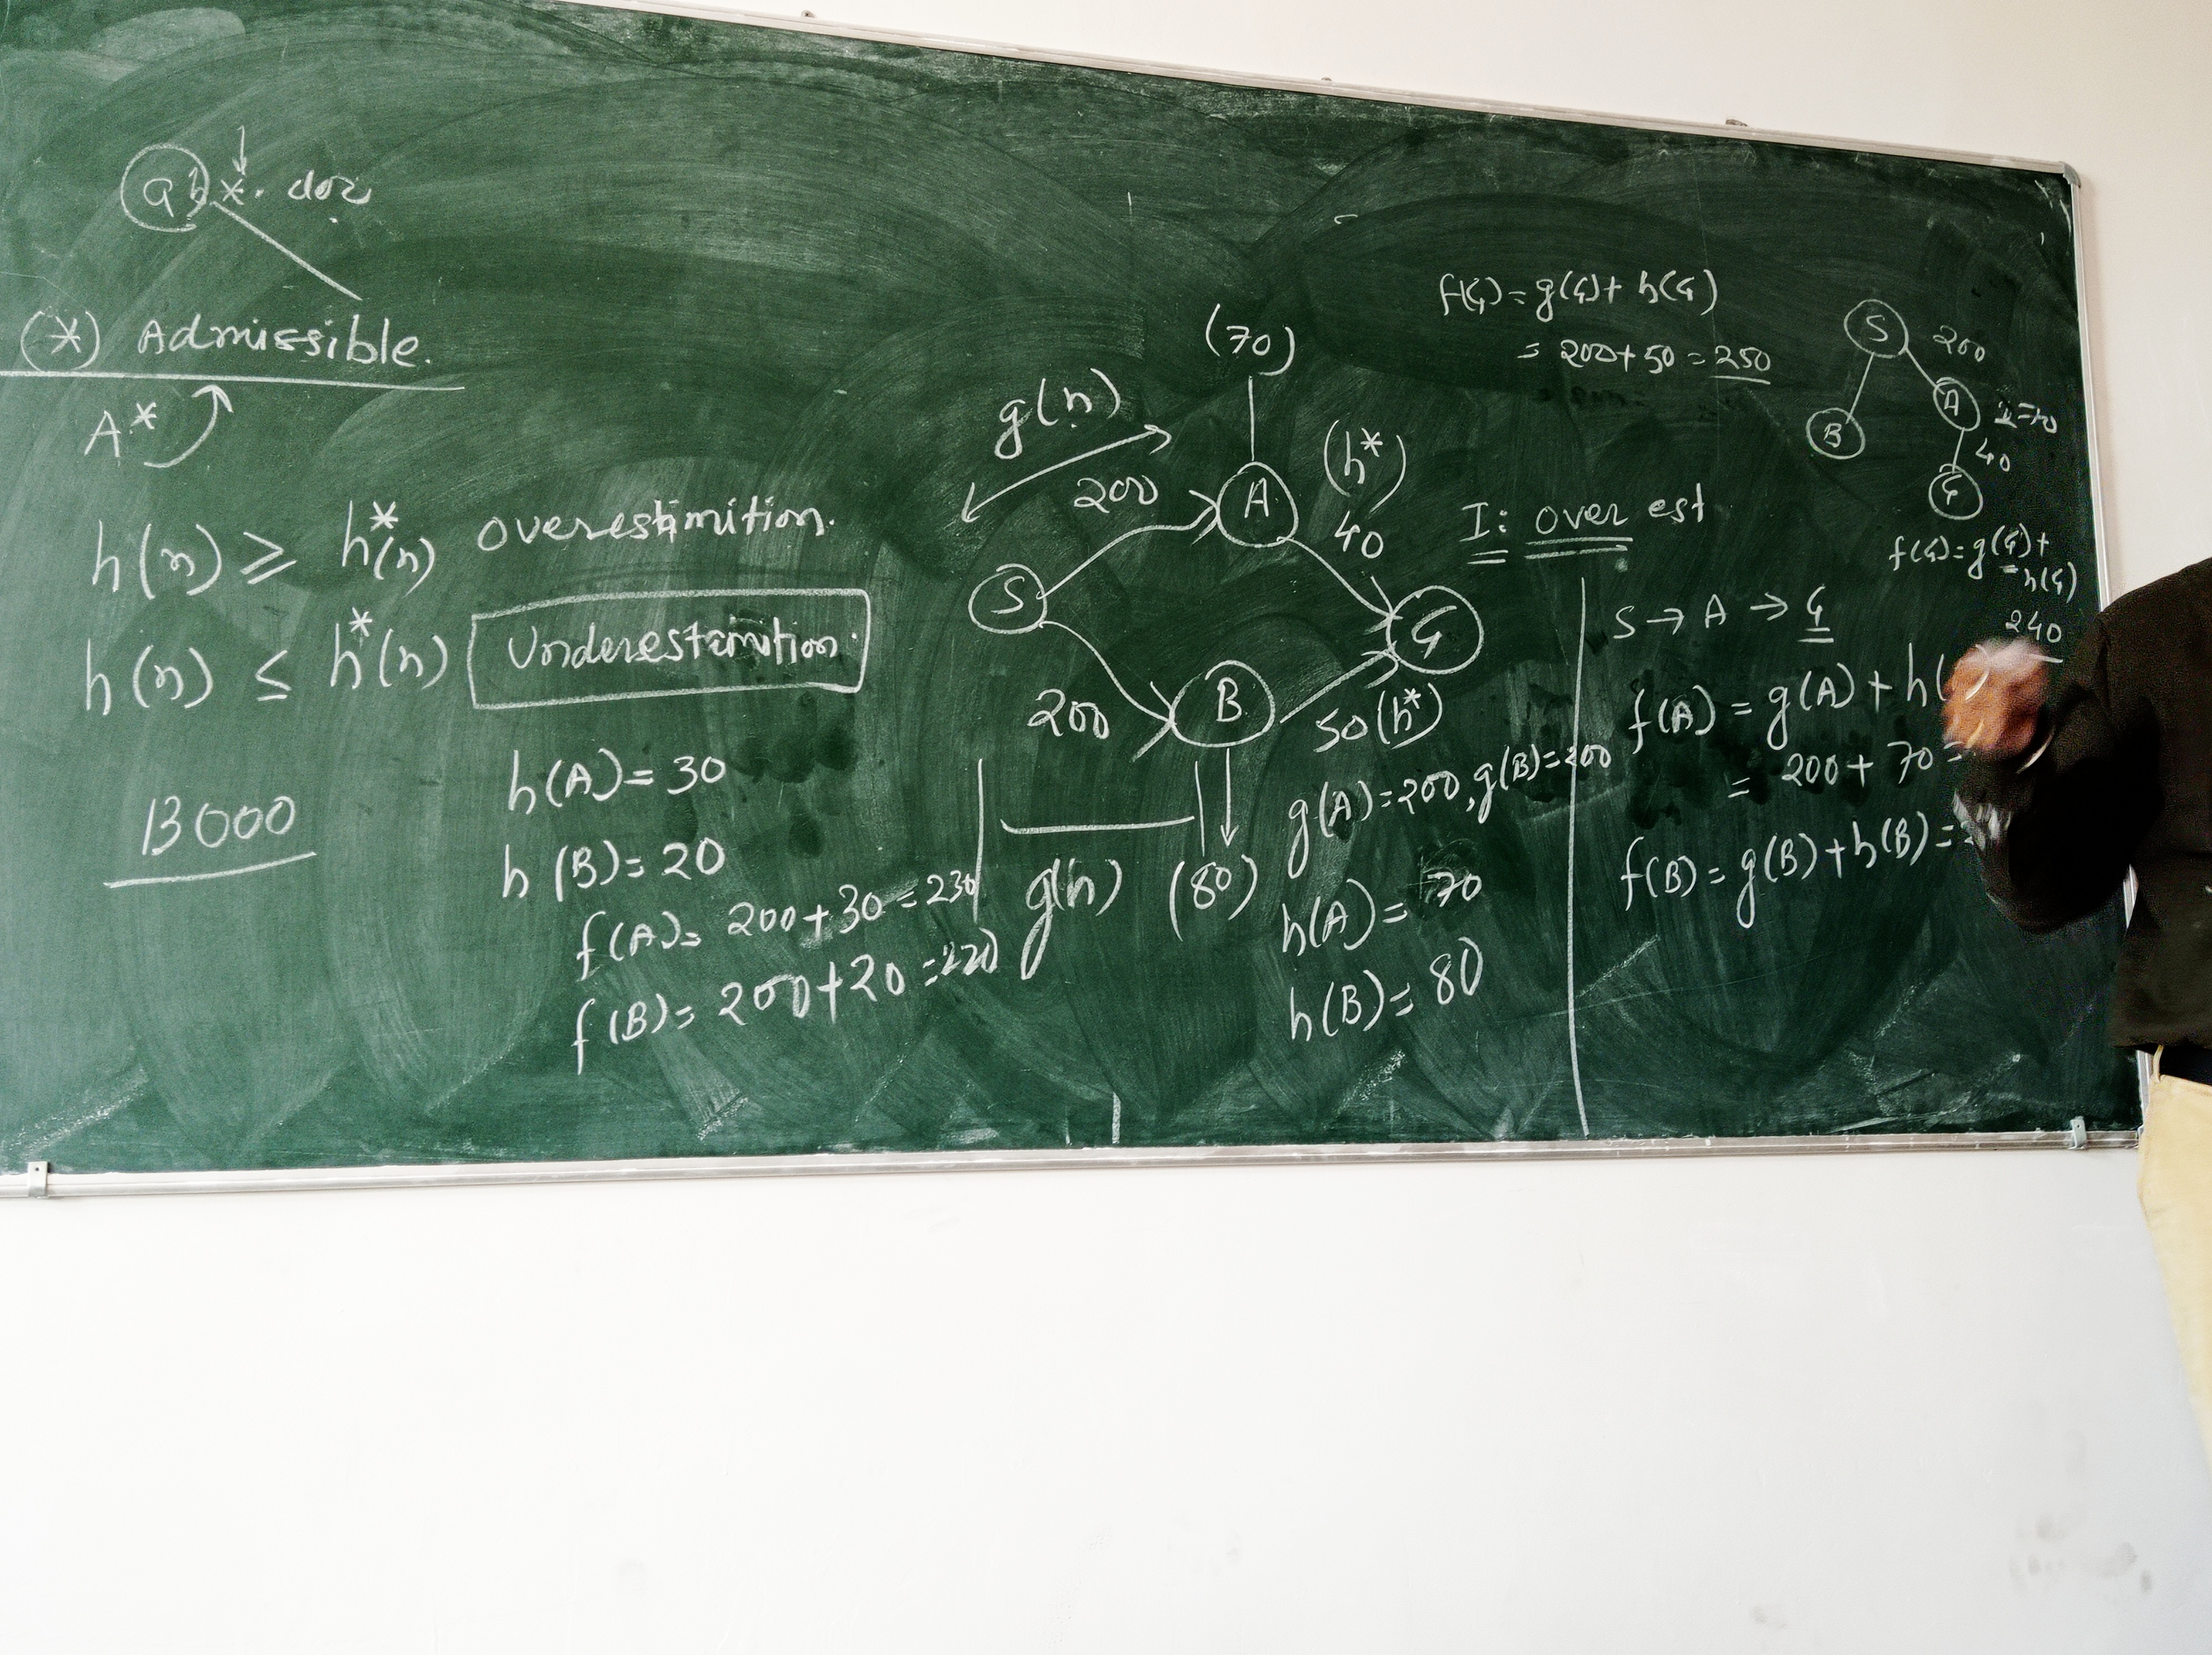 ab*. doc
(*) Admissible.
A*
h(n) ≥ h*(n) overestimition.
h(n) ≤ h*(n) Underestimition.
13000
h(A)= 30
h(B)= 20
f(A)= 200+30=230
f(B)= 200+20=220
(70)
g(n)
200
A
(h*)
40
S
G
B
200
50(h*)
g(n)
(80)
g(A)=200, g(B)=200
h(A)= 70
h(B)= 80
f(G)= g(G)+ h(G)
= 200+50=250
I: over est
S → A → G
f(A) = g(A) + h(
= 200+ 70 =
f(B) = g(B)+h(B)=
S
200
A
B
40
G
f(G)=g(G)+
h(G)
240